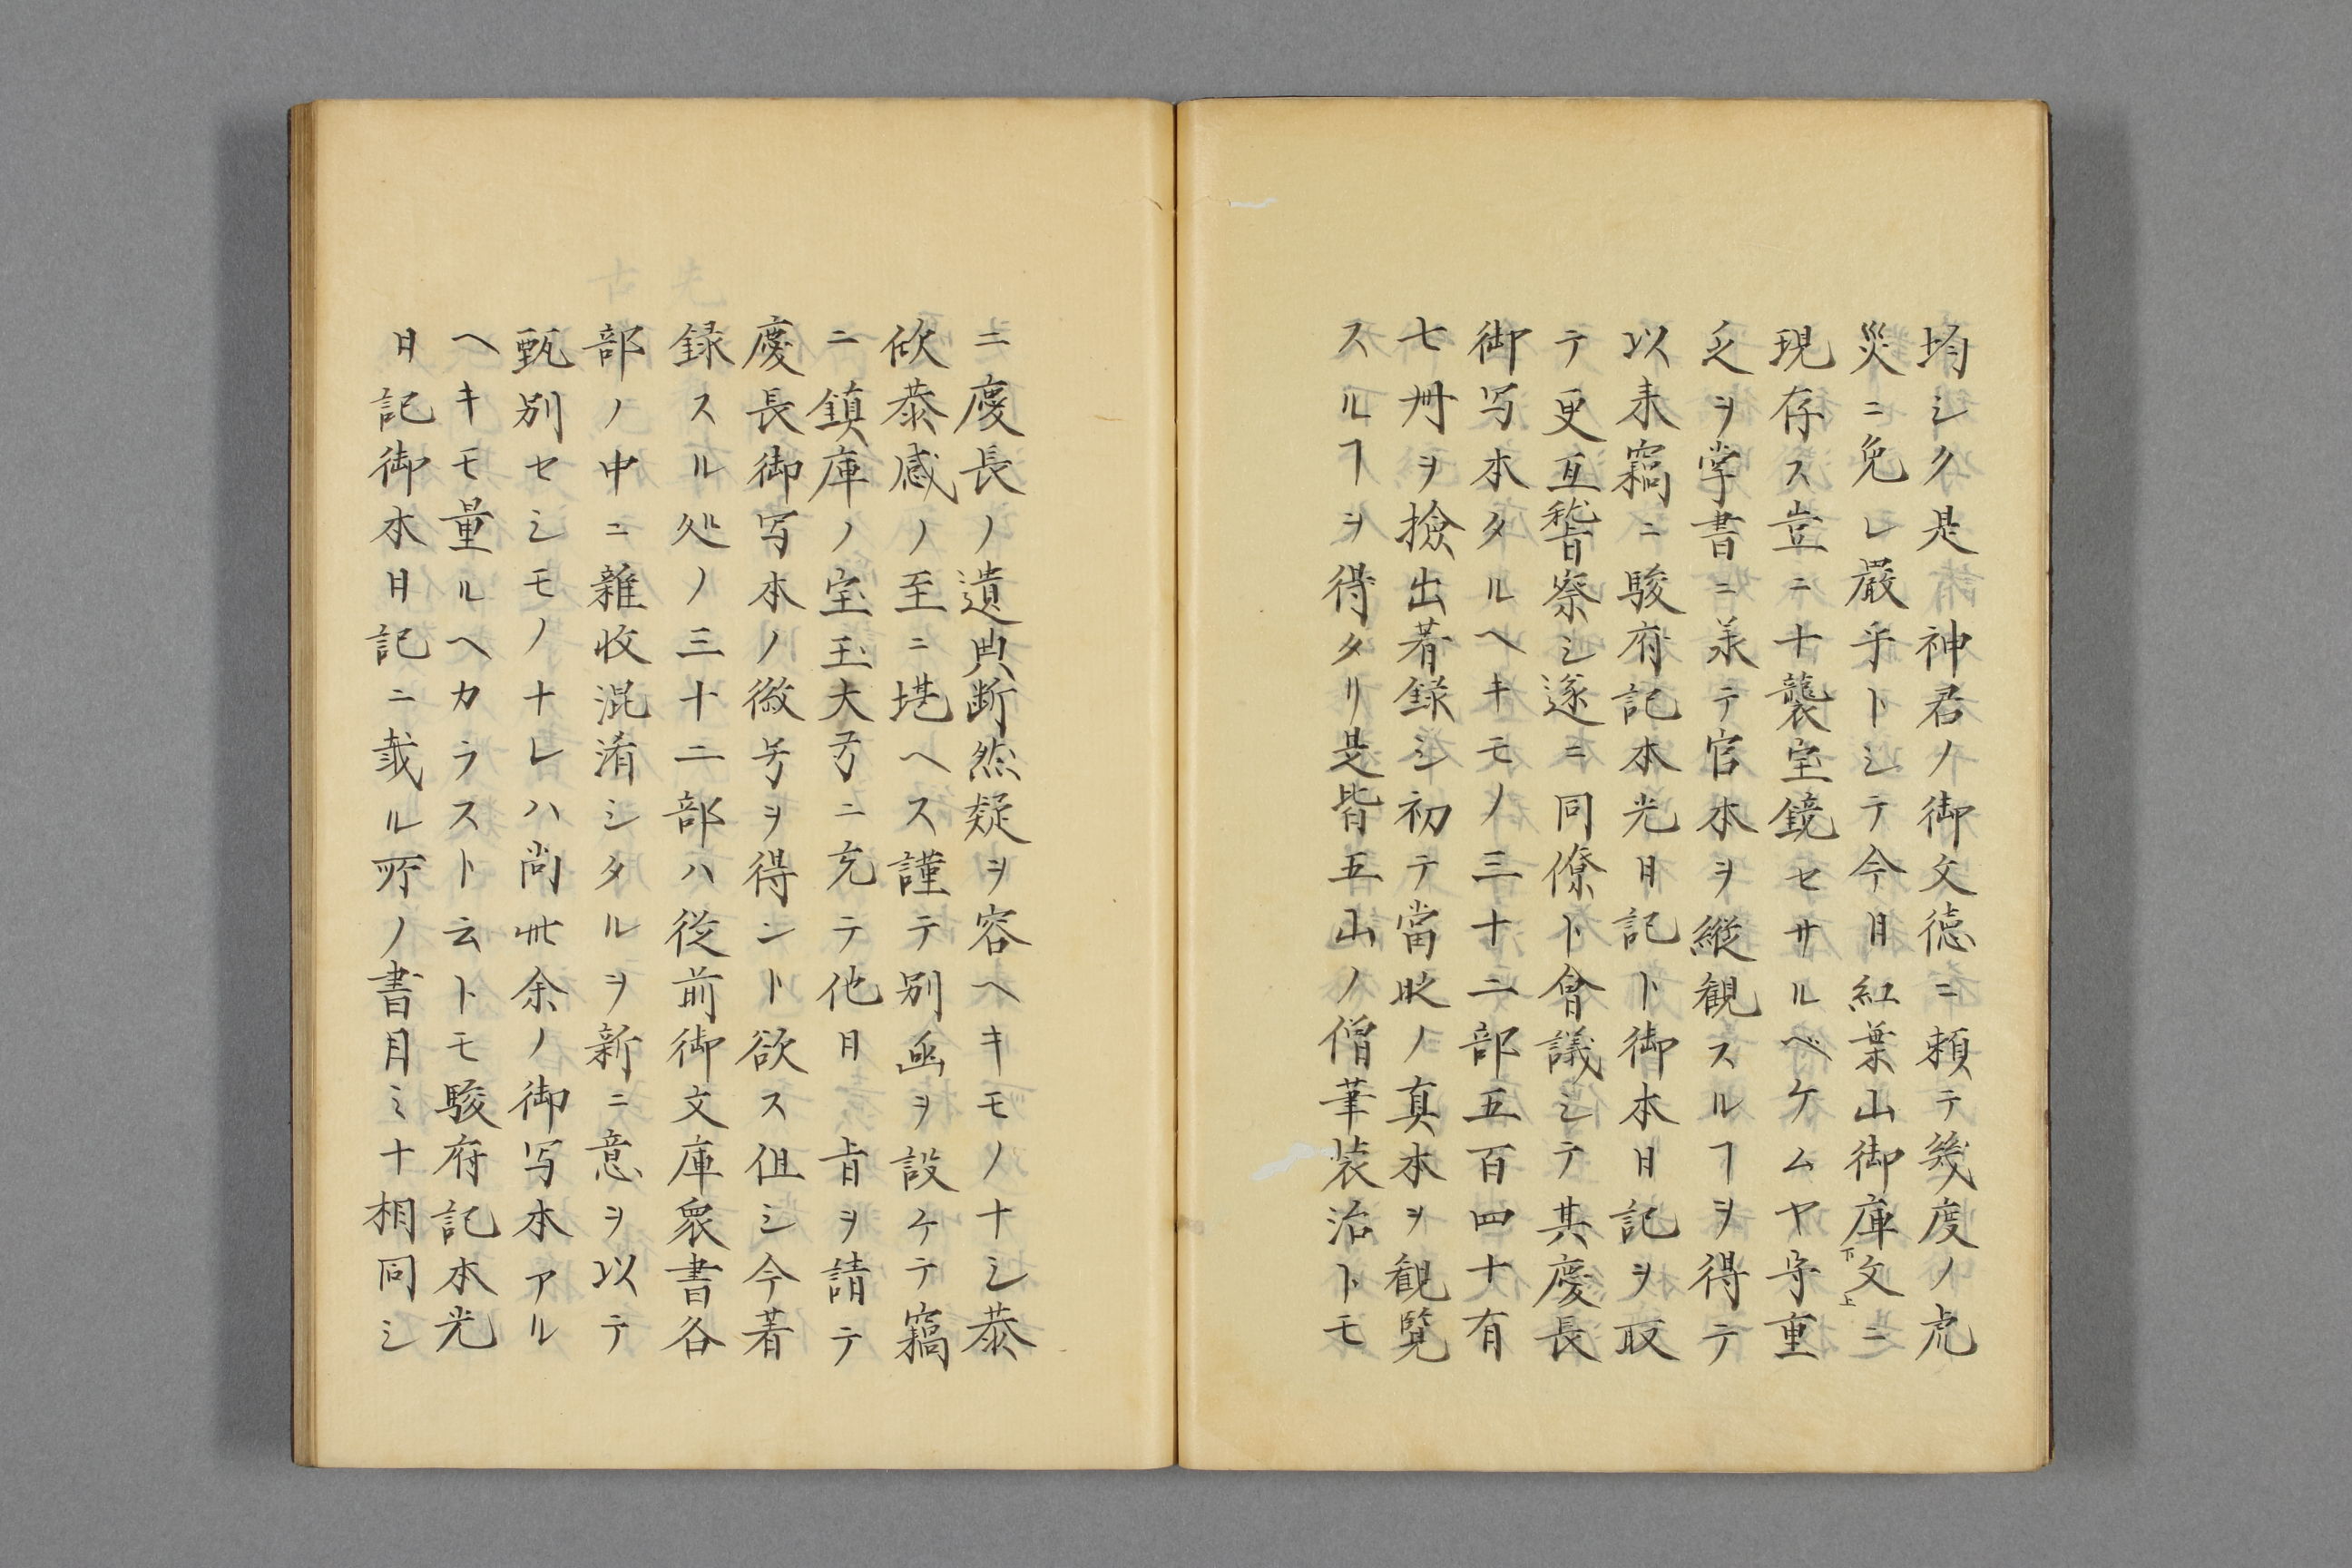 均シク是神君ノ御文徳ニ頼テ幾度ノ虎
災ニ免レ嚴乎トシテ今日紅葉山御庫文ニ
下上
現存ス豈ニ十襲宝鏡セサルベケムヤ守重
乏ヲ掌書ニ羕テ官本ヲ縦観スルヿヲ得テ
以来竊ニ駿府記本光日記ト御本日記ヲ取
テ更互稽察シ遂ニ同僚ト會議シテ其慶長
御写本タルヘキモノ三十二部五百四十有
七冊ヲ撿出著録シ初テ當時ノ真本ヲ観覧
スルヿヲ得タリ是皆五山ノ僧筆装治トモ
ニ慶長ノ遺典断然疑ヲ容ヘキモノナシ恭
欣恭感ノ至ニ堪ヘス謹テ別凾ヲ設ケテ竊
ニ鎮庫ノ宝玉大弓ニ充テ他日旨ヲ請テ
慶長御写本ノ徽号ヲ得ント欲ス但シ今著
録スル処ノ三十二部ハ従前御文庫衆書各
部ノ中ニ雜收混淆シタルヲ新ニ意ヲ以テ
甄別セシモノナレハ尚此余ノ御写本アル
ヘキモ量ルヘカラスト云トモ駿府記本光
日記御本日記ニ載ル所ノ書目ミナ相同シ